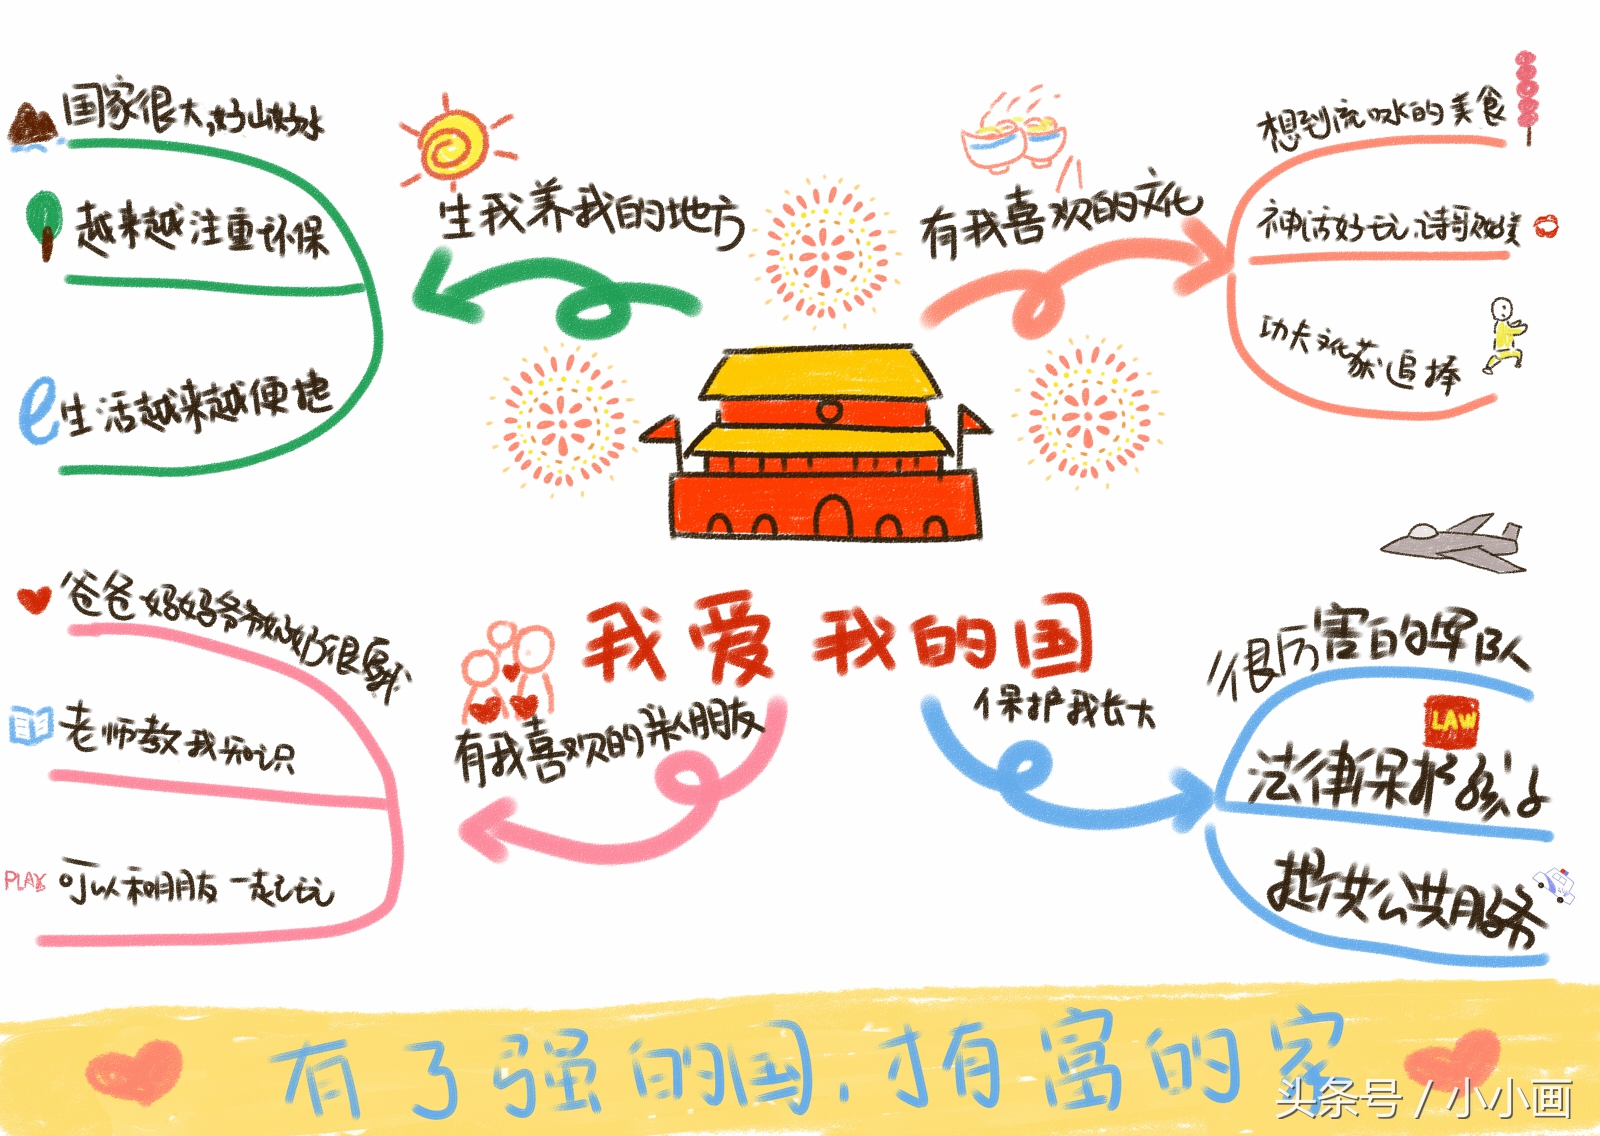 国家很大,好山好水
越来越注重环保
e生活越来越便捷
生我养我的地方
有我喜欢的文化
想到流口水的美食
神话好玩,诗歌做美
功夫文化茶追捧
我爱我的国
爸爸妈妈爷爷奶奶很爱我
老师教我知识
PLAY 可以和朋友一起玩
有我喜欢的亲人朋友
保护我长大
很厉害的军队
LAW
法律保护孩子
提供公共服务
有了强的国,才有富的家
头条号 / 小小画